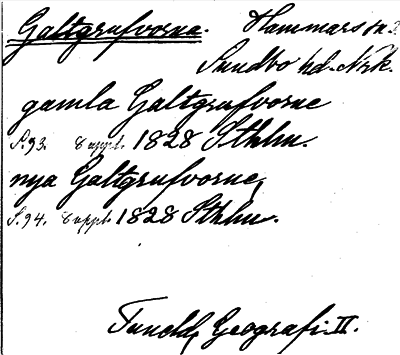 Galtgrufvorna. Hammars sn.
Sundbo hd. Nrk.
gamla Galtgrufvorne
S. 93. 8 uppl. 1828 Sthlm.
nya Galtgrufvorne,
S. 94. 8 uppl. 1828 Sthlm.
Tuneld, Geografi. II.